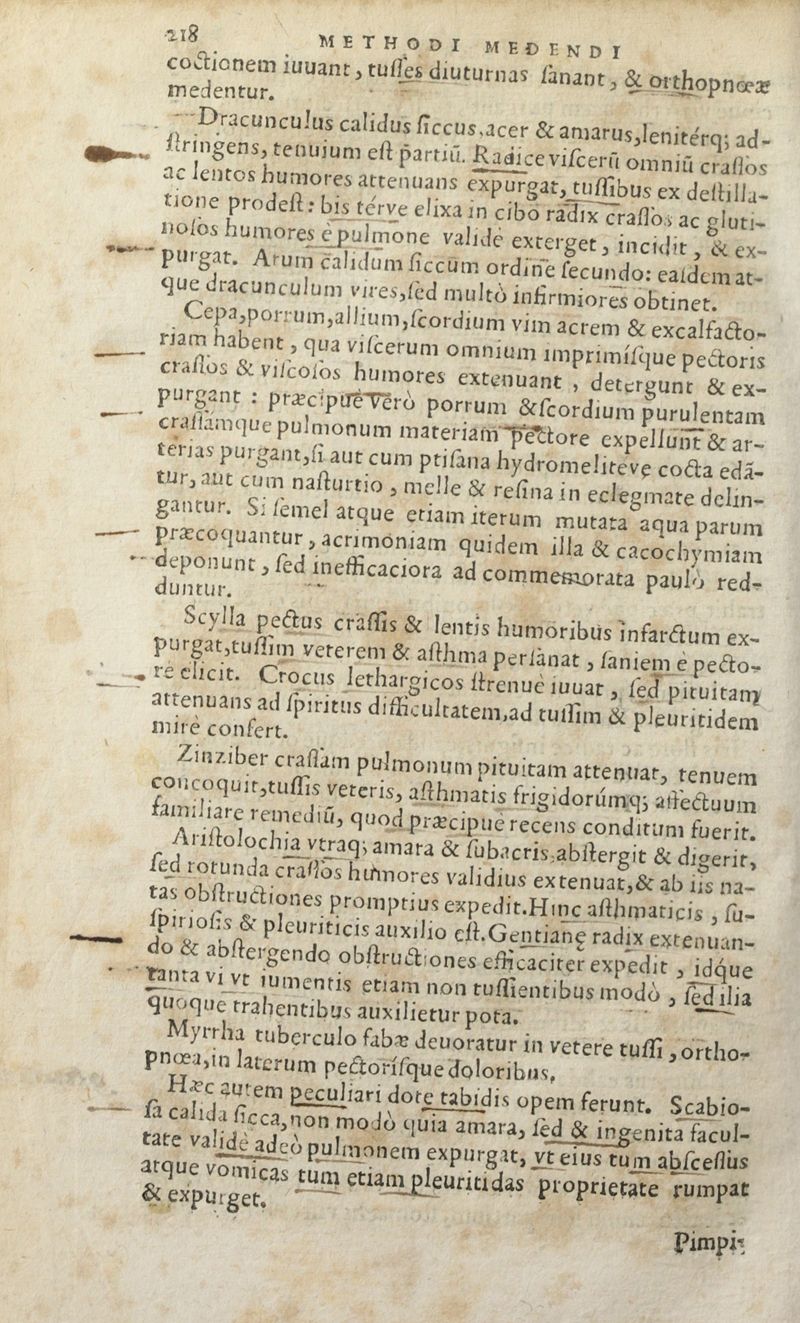 218 METHODI MEDENDI
coctionem iuuant, tusses diuturnas sanant, & orthopnœæ
medentur.
Dracunculus calidus siccus, acer & amarus, lenitérq; ad-
stringens, tenuium est partiū. Radice viscerū omniū crassos
ac lentos humores attenuans expurgat, tussibus ex destilla-
tione prodest: bis térve elixa in cibo radix crassos ac gluti-
nosos humores è pulmone validè exterget, incidit, & ex-
purgat. Arum calidum siccum ordine secundo: easdem at-
que dracunculum vires, sed multò infirmiores obtinet.
Cepa, porrum, allium, scordium vim acrem & excalfacto-
riam habent, qua viscerum omnium imprimísque pectoris
crassos & viscosos humores extenuant, detergunt & ex-
purgant: præcipuè verò porrum & scordium purulentam
crassamque pulmonum materiam pectore expellunt & ar-
terias purgant, si aut cum ptisana hydromelitéve cocta edā-
tur, aut cum nasturtio, melle & resina in eclegmate delin-
gantur. Si semel atque etiam iterum mutata aqua parum
præcoquantur, acrimoniam quidem illa & cacochymiam
deponunt, sed inefficaciora ad commemorata paulò red-
duntur.
Scylla pectus crassis & lentis humoribus infarctum ex-
purgat, tussim veterem & asthma persanat, saniem è pecto-
re elicit. Crocus lethargicos strenuè iuuat, sed pituitam
attenuans ad spiritus difficultatem, ad tussim & pleuritidem
mirè confert.
Zinziber crassam pulmonum pituitam attenuat, tenuem
concoquit, tussis veteris, asthmatis frigidorúmq; affectuum
familiare remediū, quod præcipuè recens conditum fuerit.
Aristolochia vtraq; amara & subacris, abstergit & digerit,
sed rotunda crassos humores validius extenuat, & ab iis na-
tas obstructiones promptius expedit. Hinc asthmaticis, su-
spiriosis & pleuriticis auxilio est. Gentianę radix extenuan-
do & abstergendo obstructiones efficaciter expedit, idque
tanta vi vt iumentis etiam non tussientibus modò, sed ilia
quoque trahentibus auxilietur pota.
Myrrha tuberculo fabæ deuoratur in vetere tussi, ortho-
pnœa, in laterum pectorísque doloribus.
Hæc autem peculiari dote tabidis opem ferunt. Scabio-
sa calida sicca, non modò quia amara, sed & ingenita facul-
tate validè adeò pulmonem expurgat, vt eius tum abscessus
atque vomicas tum etiam pleuritidas proprietate rumpat
& expurget.
Pimpi-